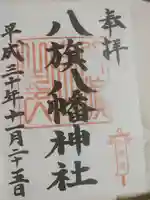 奉拝
八旗八幡神社
平成三十年十一月二十五日